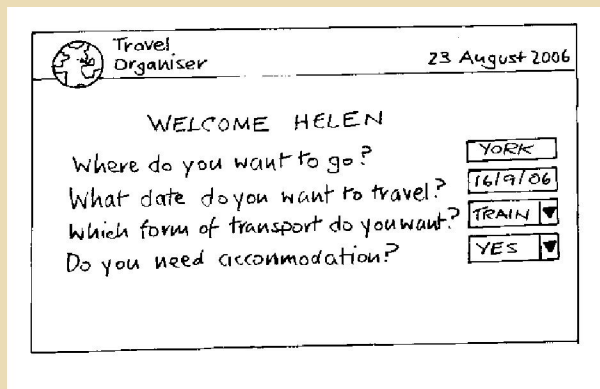 Travel
Organiser
23 August 2006
WELCOME HELEN
Where do you want to go? YORK
What date do you want to travel? 16/9/06
Which form of transport do you want? TRAIN
Do you need accommodation? YES